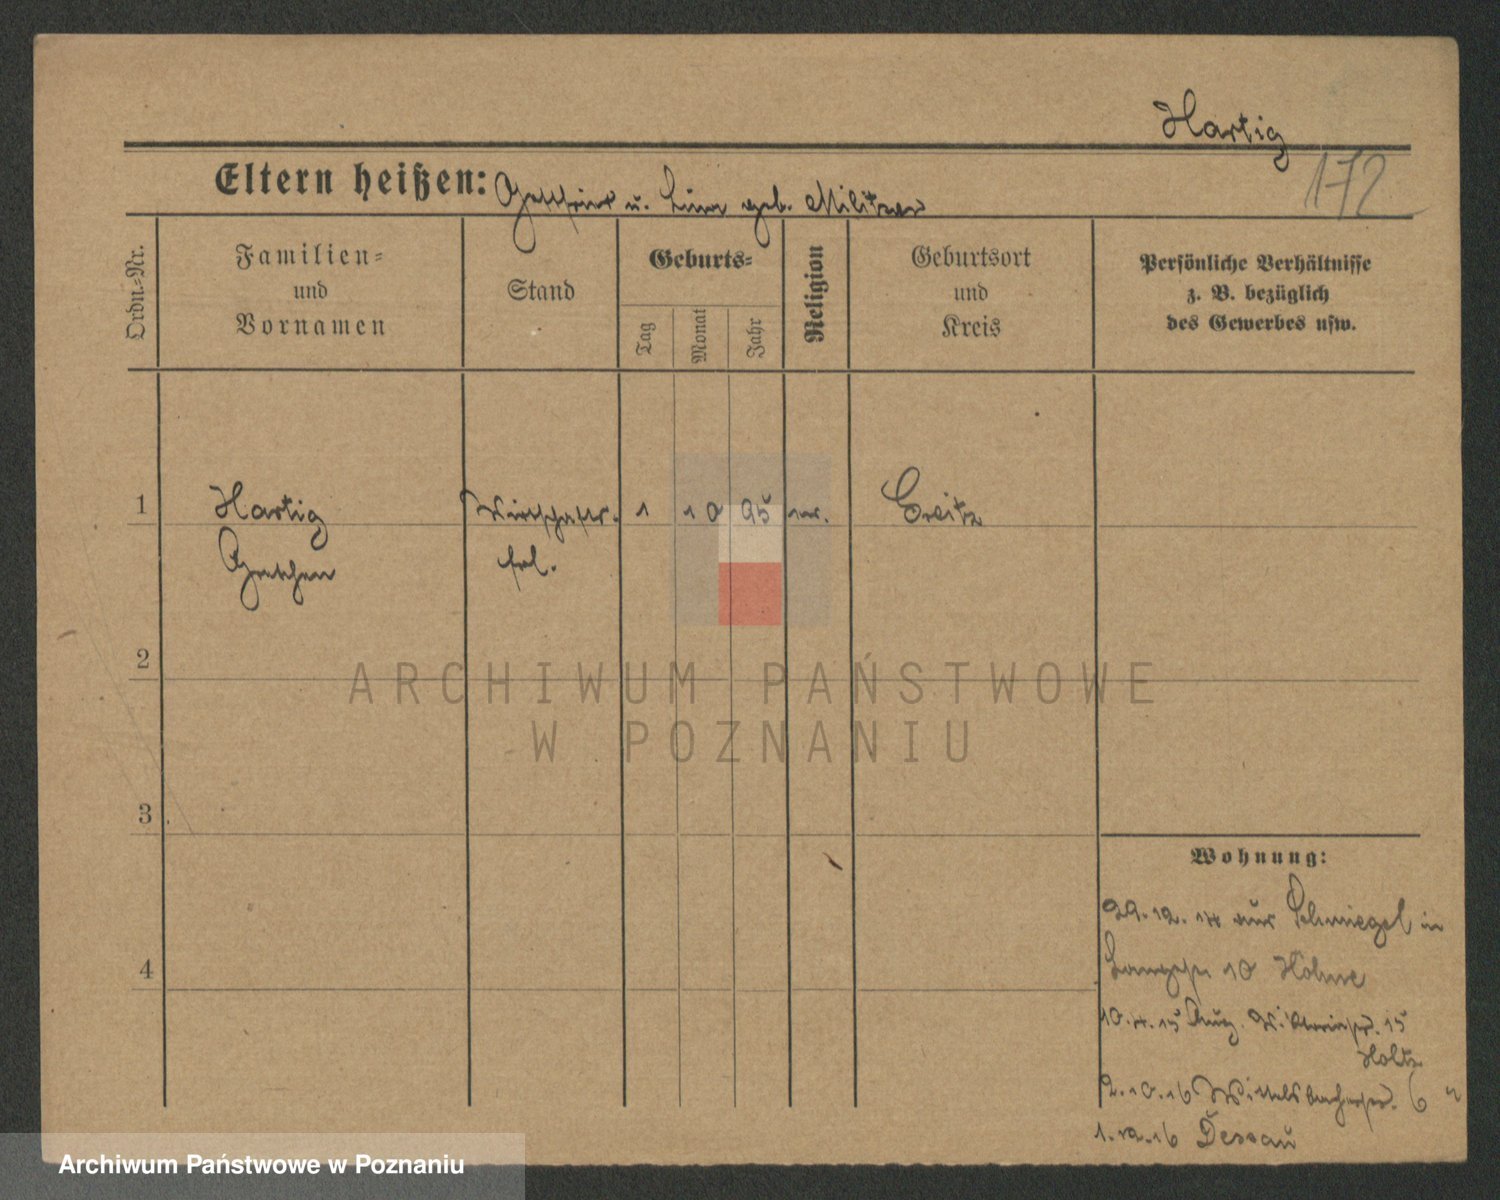 Hartig
172
Eltern heißen: Gottfried u. Lina geb. Militzer
Ordn.-Nr.
Familien-
und
Vornamen
Stand
Geburts-
Tag
Monat
Jahr
Religion
Geburtsort
und
Kreis
Persönliche Verhältnisse
z. B. bezüglich
des Gewerbes usw.
1
Hartig
Gretchen
Wirtschafts-
frl.
1 10 95
Greitz
2
3
4
Wohnung:
29.12.14 aus Schmiegel in
10 Höhne
10.4.15 Aug. Viktoriastr. 15
Holtz
2.10.16 Wittelsbacherstr. 6
1.12.16 Dessau
ARCHIWUM PAŃSTWOWE
W POZNANIU
Archiwum Państwowe w Poznaniu